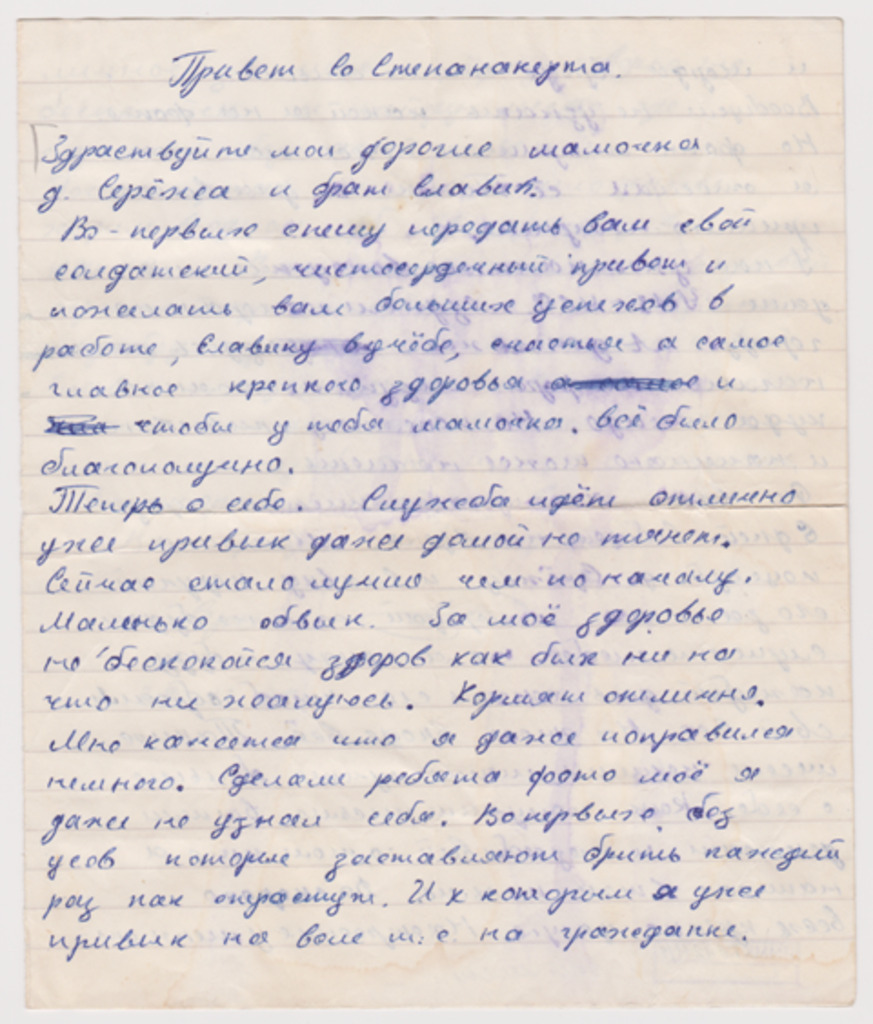 Привет со Степанакерта.
Здраствуйте мои дорогие мамочка
д. Серёжа и брат Славик.
Во-первых спешу передать вам свой
солдатский, чистосердечный привет и
пожелать вам больших успехов в
работе, Славику в учёбе, счастья а самое
главное крепкого здоровья и
чтобы у тебя мамочка. всё было
благополучно.
Теперь о себе. Служба идёт отлично
уже привык даже домой не тянет.
Сейчас стало лучше чем по началу.
Маленько обвык. За моё здоровье
не беспокойся здоров как бык ни на
что ни жалуюсь. Кормят отлично.
Мне кажется что я даже поправился
немного. Сделали ребята фото моё я
даже не узнал себя. Во первых без
усов которые заставляют брить каждый
раз как отрастут. И к которым я уже
привык на воле т.е на гражданке.